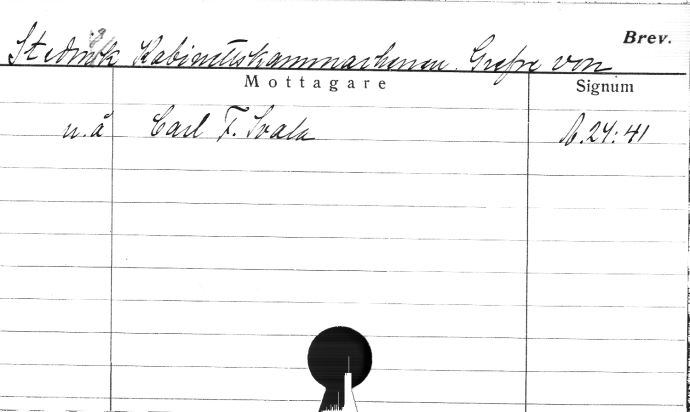 Brev.
Stedingk Kabinettskammarherren Grefve von
Mottagare Signum
u.å Carl F. Svala A.24:41